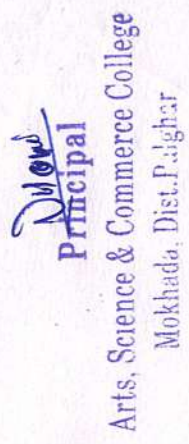 Principal
Arts, Science & Commerce College
Mokhada, Dist.Palghar